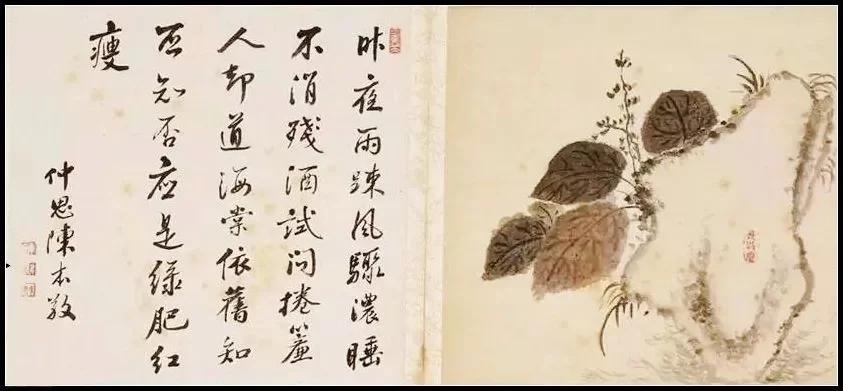 昨夜雨踈風驟濃睡
不消殘酒試问捲簾
人却道海棠依舊知
否知否应是綠肥紅
瘦
仲思陳本敬